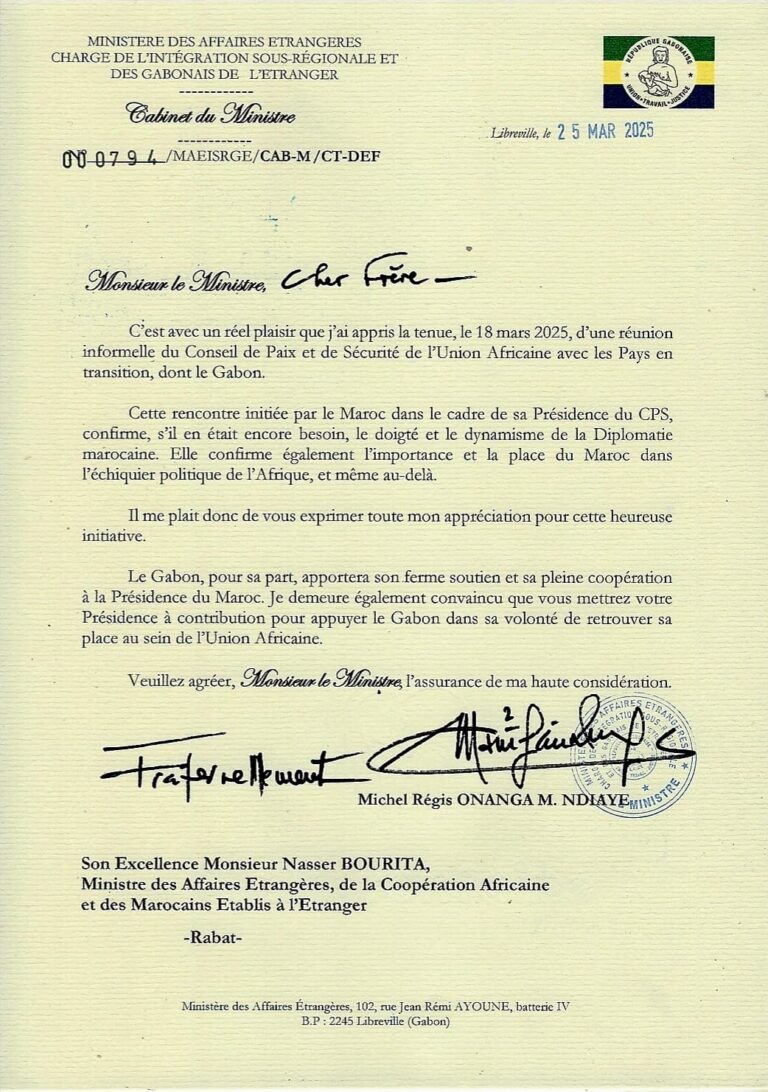 MINISTERE DES AFFAIRES ETRANGERES
CHARGE DE L'INTÉGRATION SOUS-RÉGIONALE ET
DES GABONAIS DE L'ETRANGER
------------
Cabinet du Ministre
------------
N° 000794/MAEISRGE/CAB-M/CT-DEF
REPUBLIQUE GABONAISE
UNION • TRAVAIL • JUSTICE
Libreville, le 25 MAR 2025
Monsieur le Ministre, Cher Frère —
C'est avec un réel plaisir que j'ai appris la tenue, le 18 mars 2025, d'une réunion
informelle du Conseil de Paix et de Sécurité de l'Union Africaine avec les Pays en
transition, dont le Gabon.
Cette rencontre initiée par le Maroc dans le cadre de sa Présidence du CPS,
confirme, s'il en était encore besoin, le doigté et le dynamisme de la Diplomatie
marocaine. Elle confirme également l'importance et la place du Maroc dans
l'échiquier politique de l'Afrique, et même au-delà.
Il me plait donc de vous exprimer toute mon appréciation pour cette heureuse
initiative.
Le Gabon, pour sa part, apportera son ferme soutien et sa pleine coopération
à la Présidence du Maroc. Je demeure également convaincu que vous mettrez votre
Présidence à contribution pour appuyer le Gabon dans sa volonté de retrouver sa
place au sein de l'Union Africaine.
Veuillez agréer, Monsieur le Ministre, l'assurance de ma haute considération.
Fraternellement
Michel Régis ONANGA M. NDIAYE
Son Excellence Monsieur Nasser BOURITA,
Ministre des Affaires Etrangères, de la Coopération Africaine
et des Marocains Etablis à l'Etranger
-Rabat-
Ministère des Affaires Étrangères, 102, rue Jean Rémi AYOUNE, batterie IV
B.P : 2245 Libreville (Gabon)